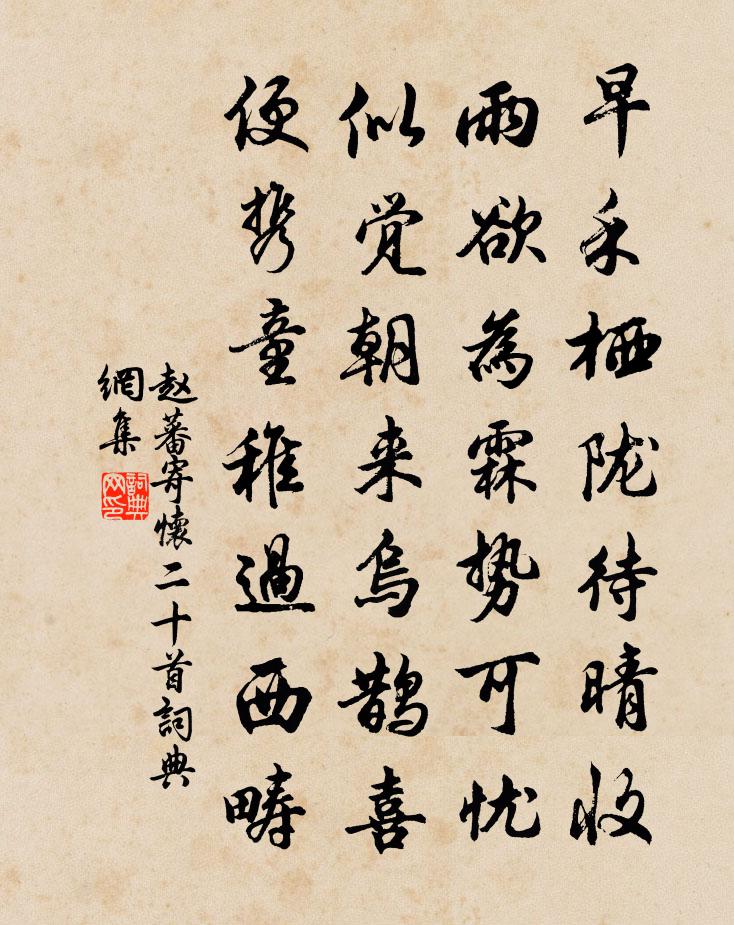 早禾栖陇待晴收
雨欲為霖势可忧
似觉朝来烏鹊喜
便携童稚過西畴
赵蕃寄懷二十首詞典
網集
詞典
网印